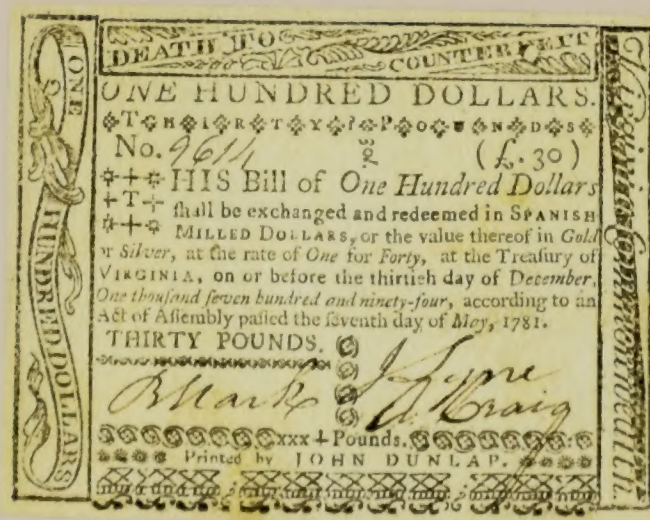 DEATH TO COUNTERFEIT
ONE HUNDRED DOLLARS.
THIRTY POUNDS
No. 9614 (£.30)
THIS Bill of One Hundred Dollars
ſhall be exchanged and redeemed in SPANISH
MILLED DOLLARS, or the value thereof in Gold
or Silver, at the rate of One for Forty, at the Treaſury of
VIRGINIA, on or before the thirtieh day of December,
One thouſand ſeven hundred and ninety-four, according to an
Act of Aſſembly paſſed the ſeventh day of May, 1781.
THIRTY POUNDS.
B Stark
J. Lyne
A. Craig
xxx Pounds.
Printed by JOHN DUNLAP.
ONE HUNDRED DOLLARS
Virginia Commonwealth.